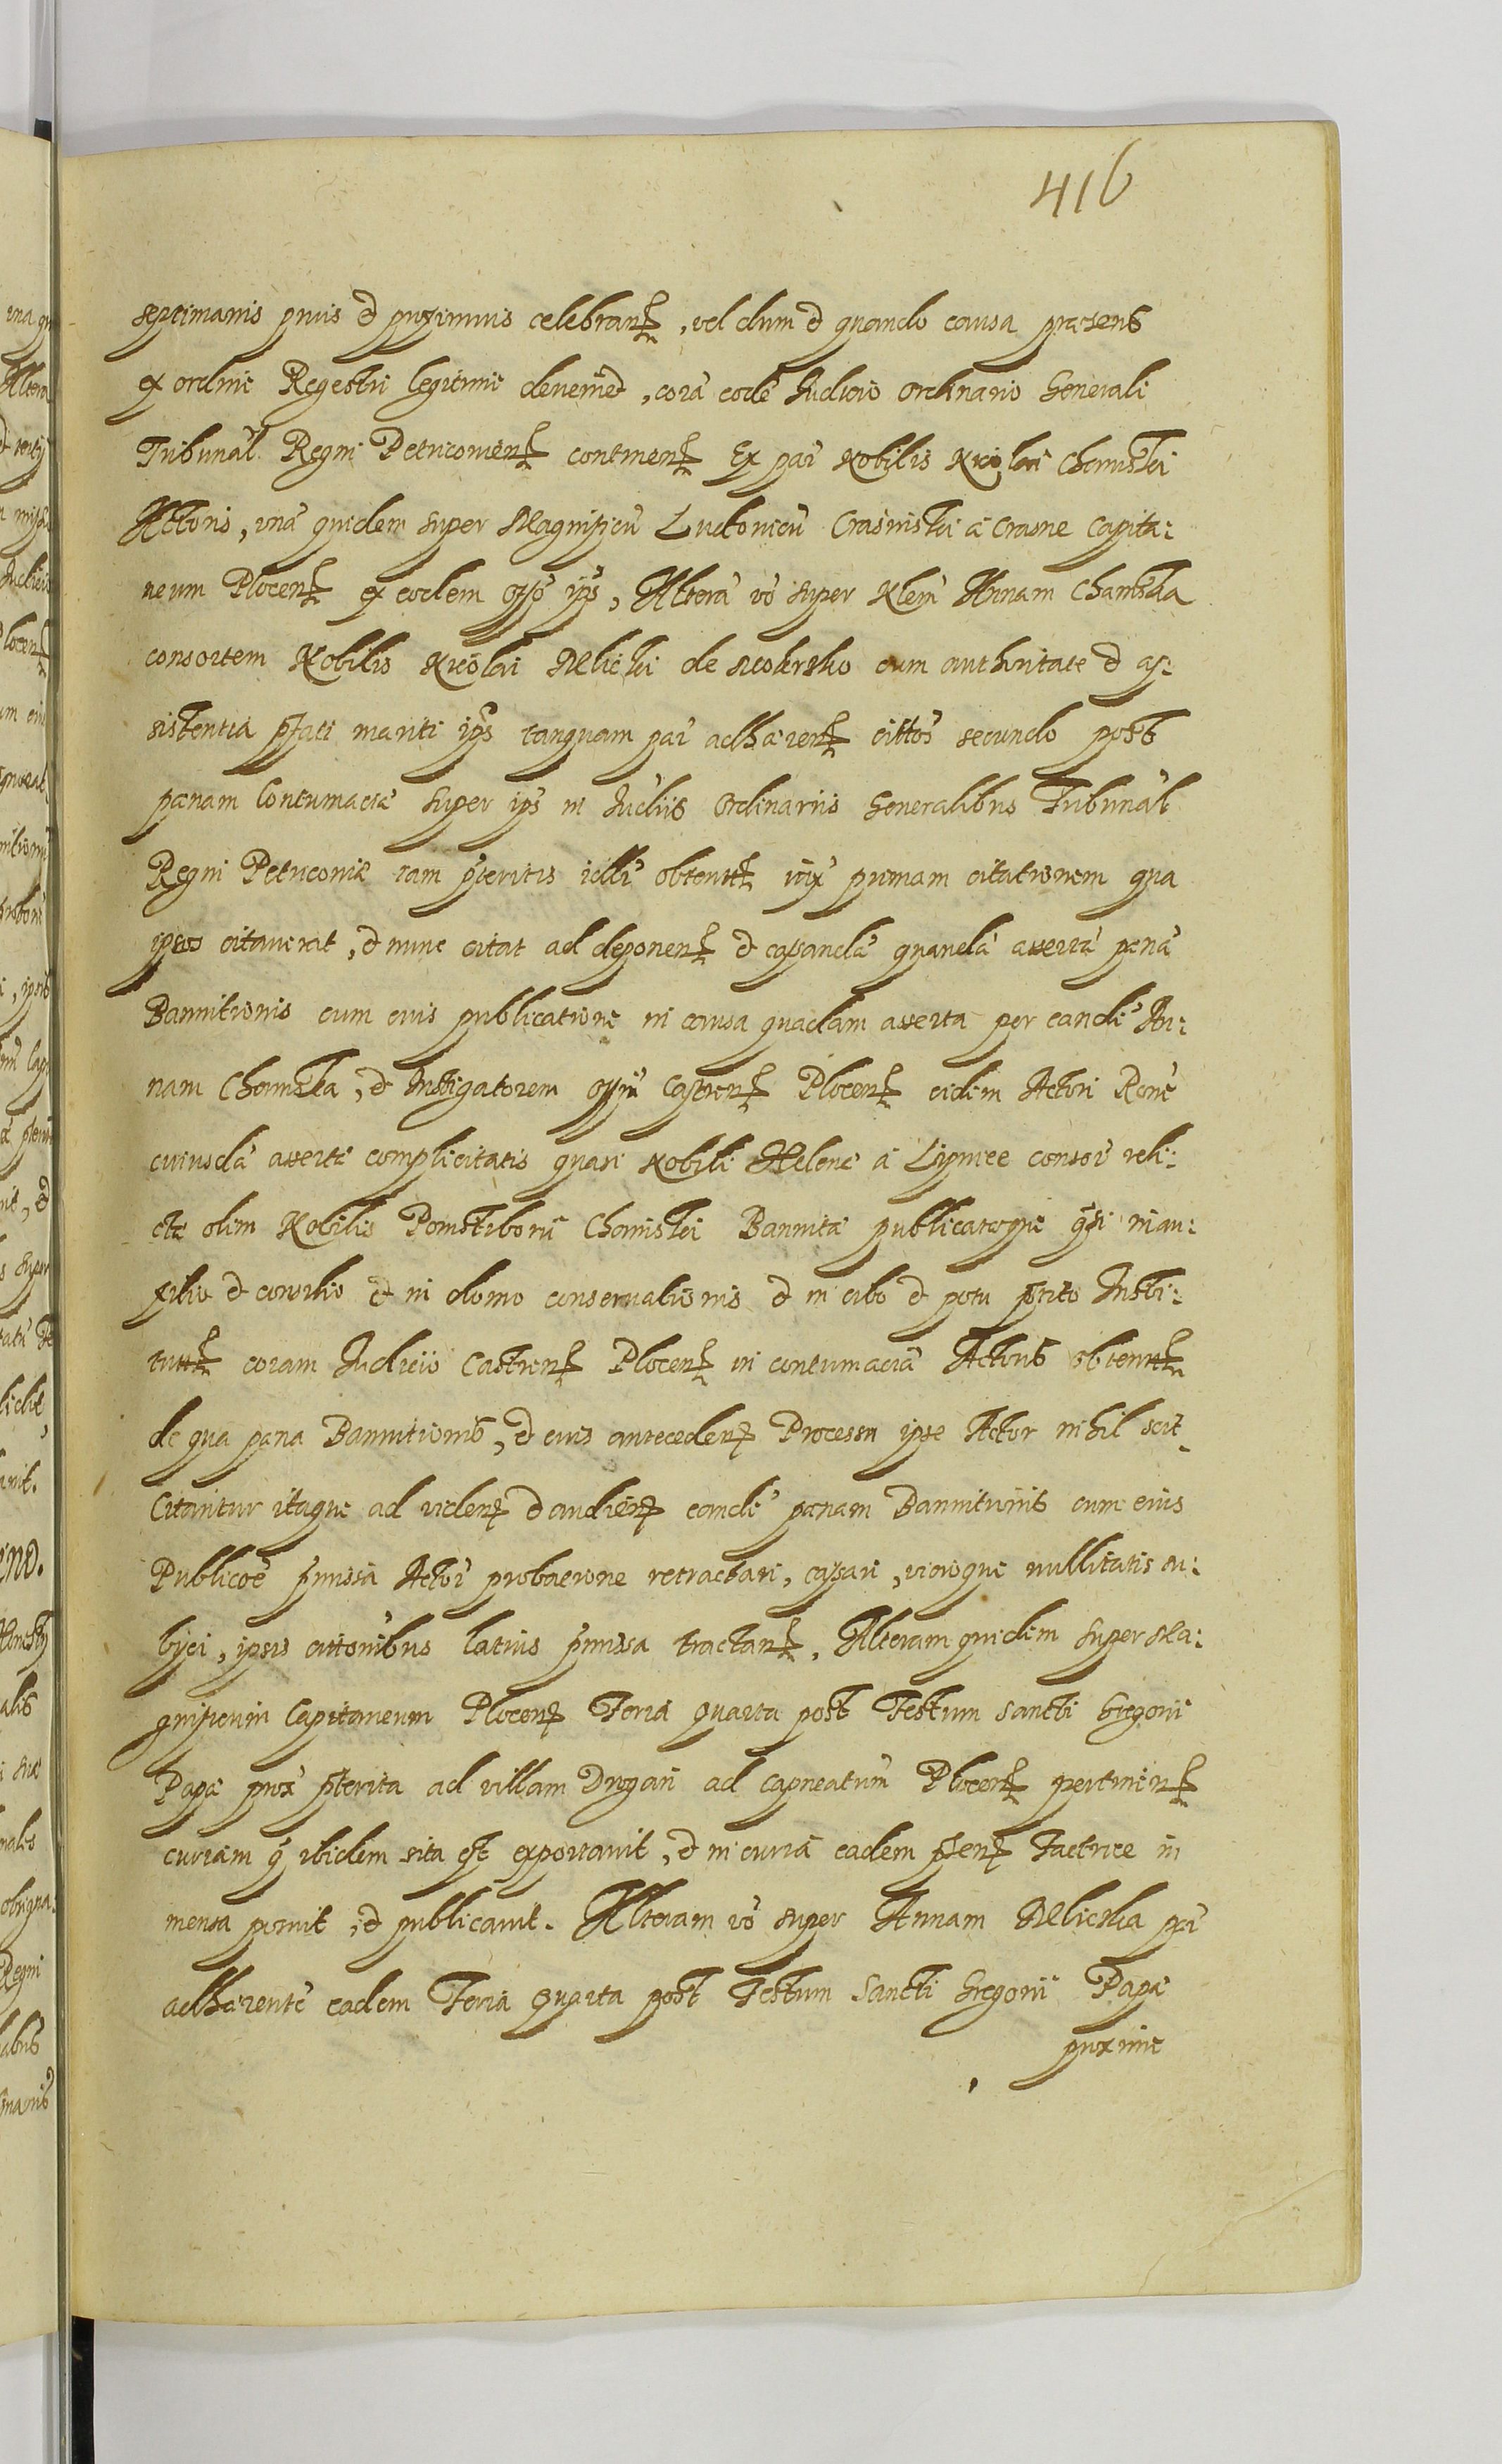 416
septimanis primis et proximis celebran, vel dum et quando causa praesens
ex ordine Regestri legitime devenied, corā eodē Iudicio ordinario Generali
Tribunal Regni Petricovien continen Ex par Nobilis Nicolai Chamski
Actoris, unā quidem super Magnificū Ludovicū Crasinski a Crasne Capita:
neum Plocen ex eodem offo ips, Alterā vō super Annam Chamska
consortem Nobilis Nicolai Mlicki de cum authoritate et as:
sistentia pfati mariti ips tanquam par adhaeren cittos secundo post
paenam Contumaciae super ips in Iudiis Ordinariis Generalibus Tribunal
Regni Petricoviae iam pteritis obtent iux primam citationem qua
ipsos citaverat, et nunc citat ad deponen et cassandā quandā assertā paenā
Bannitionis cum eius publicatione in causa quadam asserta per eandē An:
nam Chamska, et Instigatorem offii Castren Plocen eidem Actori Ronē
cuiusdā assertae complicitatis quasi Nobili Helenae a Lipniee consor reli:
ctae olim Nobilis Pomstiborii Chamski Bannitae publicataeque qsi in au:
xilio et consilio et in domo conservationis et in cibo et potu pstito Insti:
tutt coram Iudicio Castren Plocen in contumaciā Actoris obtent
de qua paena Bannitionis, et eius anteceden Processu ipse Actor nihil scit
Citantur itaque ad viden et audien eandē paenam Bannitionis cum eius
Publicoē pmissā Actor probaerone retractari, cassari, vicioque nullitatis su:
byci, ipsis cittonibus latius pmissa tractan. Alteram quidem super Ma:
gnificum Capitaneum Plocen Feria quarta post Festum Sancti Gregorii
Papae prox pterita ad villam Drogan ad capneatum Plocen pertinen
curiam q ibidem sita est exportavit, et in curia eadem Factrice in
mensa posuit, et publicavit. Alteram vō super Annam Mlicka par
adhaerentē eadem Feria quarta post Festum Sancti Gregorii Papae
proxime